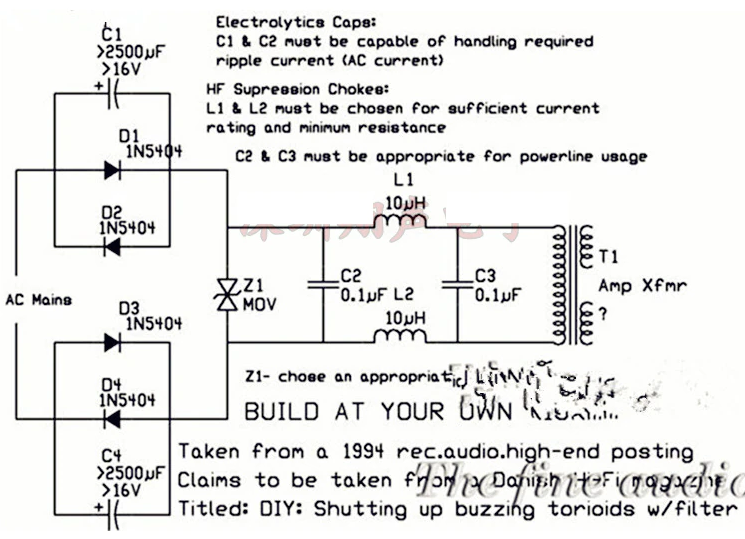 Electrolytics Caps:
C1 & C2 must be capable of handling required
ripple current (AC current)
HF Supression Chokes:
L1 & L2 must be chosen for sufficient current
rating and minimum resistance
C2 & C3 must be appropriate for powerline usage
C1
>2500µF
>16V
+
D1
1N5404
D2
1N5404
AC Mains
D3
1N5404
D4
1N5404
C4
>2500µF
>16V
+
Z1
MOV
L1
10µH
C2
0.1µF
L2
10µH
C3
0.1µF
T1
Amp Xfmr
?
Z1- chose an
BUILD AT YOUR OWN
Taken from a 1994 rec.audio.high-end posting
Claims to be taken from a Danish H-Fi magazine
Titled: DIY: Shutting up buzzing torioids w/filter
The fine audio